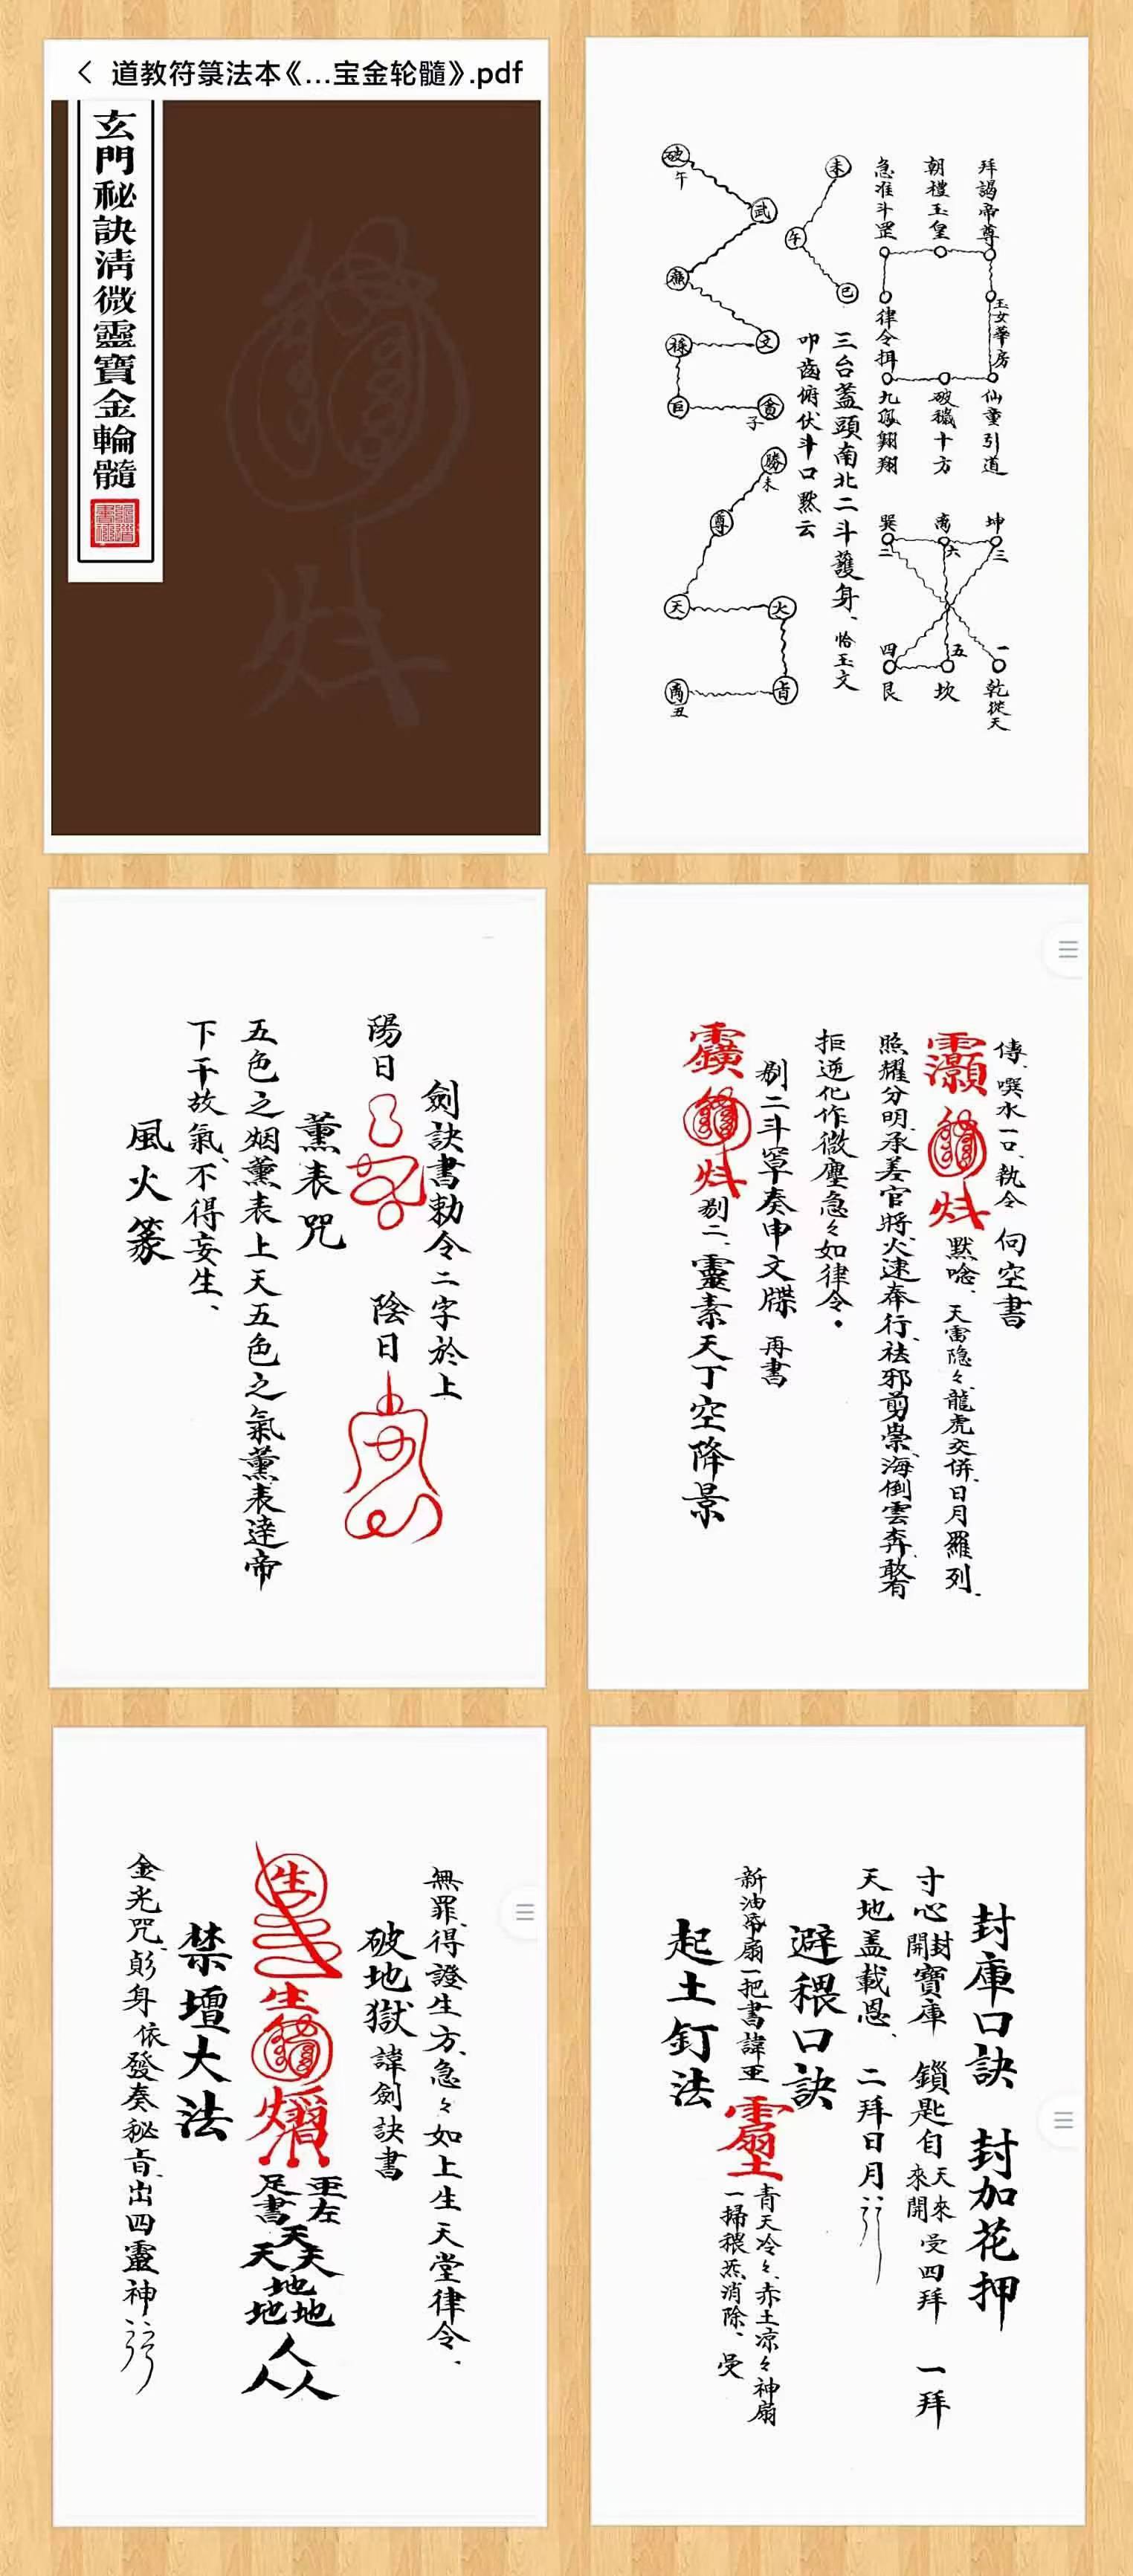 道教符箓法本《...宝金轮髓》.pdf
玄門秘訣清微靈寶金輪髓
拜謁帝尊
朝禮玉皇
急准斗罡
玉女華房
律令揖
仙童引道
破穢十方
九鳳翱翔
坤三
离六
巽二
一乾從天
五坎
四艮
三台蓋頭南北二斗護身、恰玉文
叩齒俯伏斗口默云
未
午
巳
破午
武
廉
文
祿
巨
貪子
勝未
尊
天
火
丑
傳、噀水一口、執令 向空書
默唸、天雷隐々、龍虎交併、日月羅列、
照耀分明、承差官將火速奉行、祛邪剪祟、海倒雲奔、敢有
拒逆化作微塵急々如律令。
剔二斗罩奏申文牒 再書
剔二、靈素天丁空降景
劍訣書勅令二字於上
陽日 陰日
薰表咒
五色之烟薰表上天五色之氣薰表達帝
下干故氣、不得妄生、
風火篆
封庫口訣 封加花押
寸心開封寶庫 鎖匙自天來來開 受四拜 一拜
天地盖載恩、二拜日月
避穢口訣
新油帋扇一把書諱
青天冷々、赤土凉々神扇
一掃穢炁消除、受
起土釘法
無罪、得證生方、急々如上生天堂律令、
破地獄諱劍訣書
生
生
左
足書
天天天
地地地
人人人
禁壇大法
金光咒、身依發奏秘旨、出四靈神